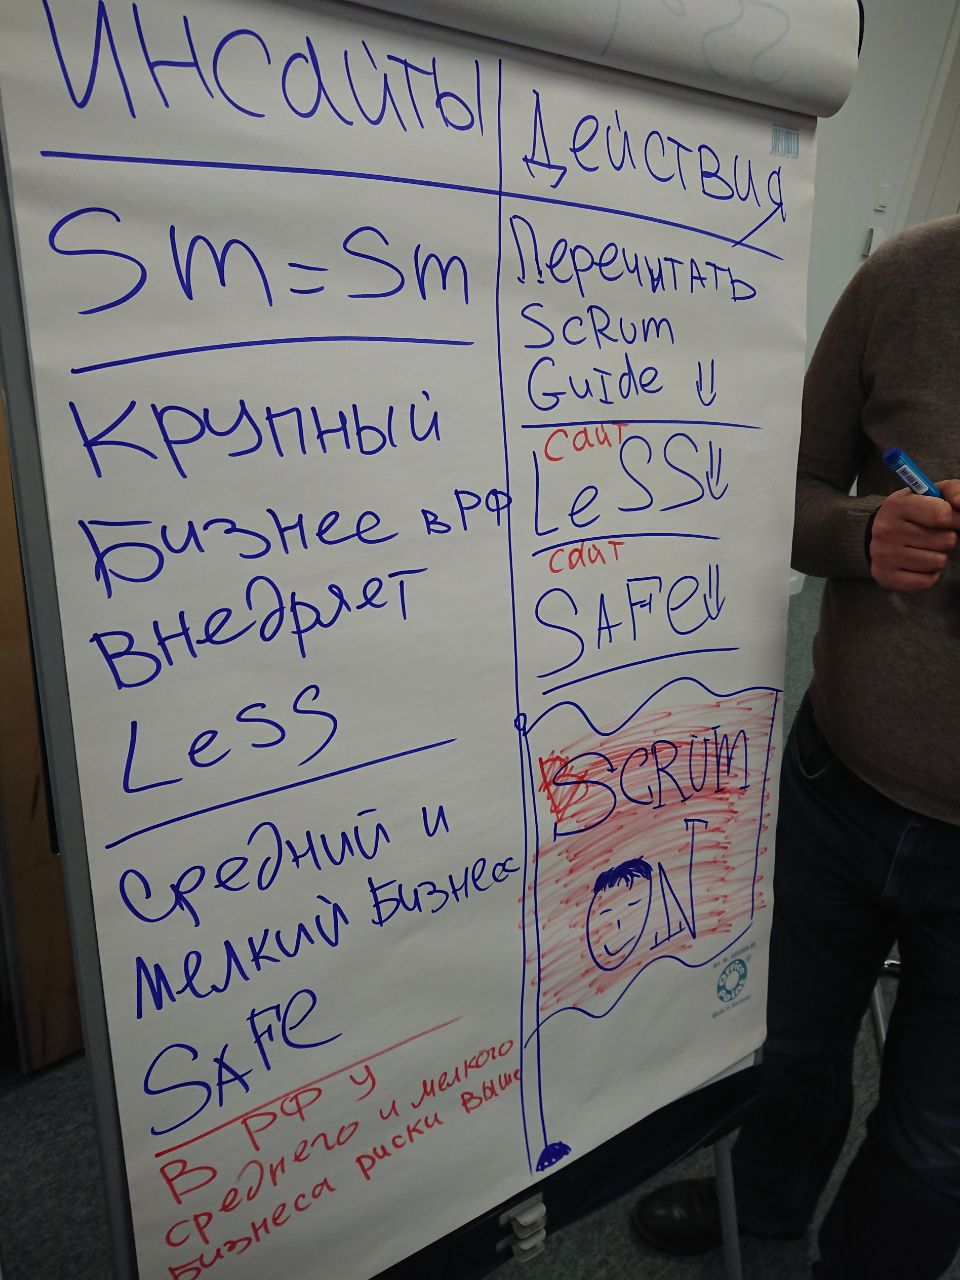 Инсайты
Sm = Sm
Крупный
Бизнес в РФ
внедряет
LeSS
Средний и
мелкий Бизнес
SAFe
В РФ у
среднего и мелкого
бизнеса риски выше
Действия
Перечитать
ScRum
GuIde
сайт
LeSS
сайт
SAFe
SCRUM
ON
Made in Germany